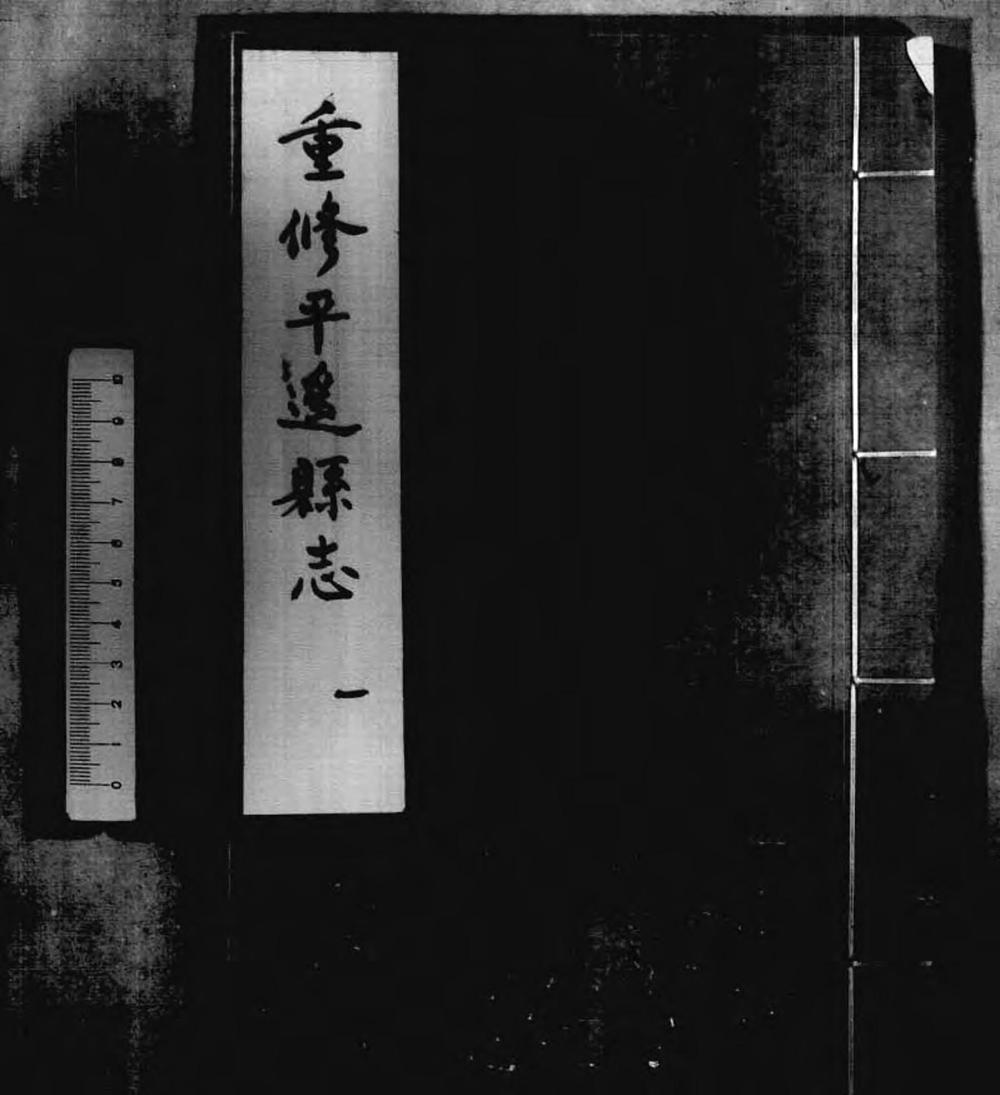 重修平遙縣志
一
10
9
8
7
6
5
4
3
2
1
0